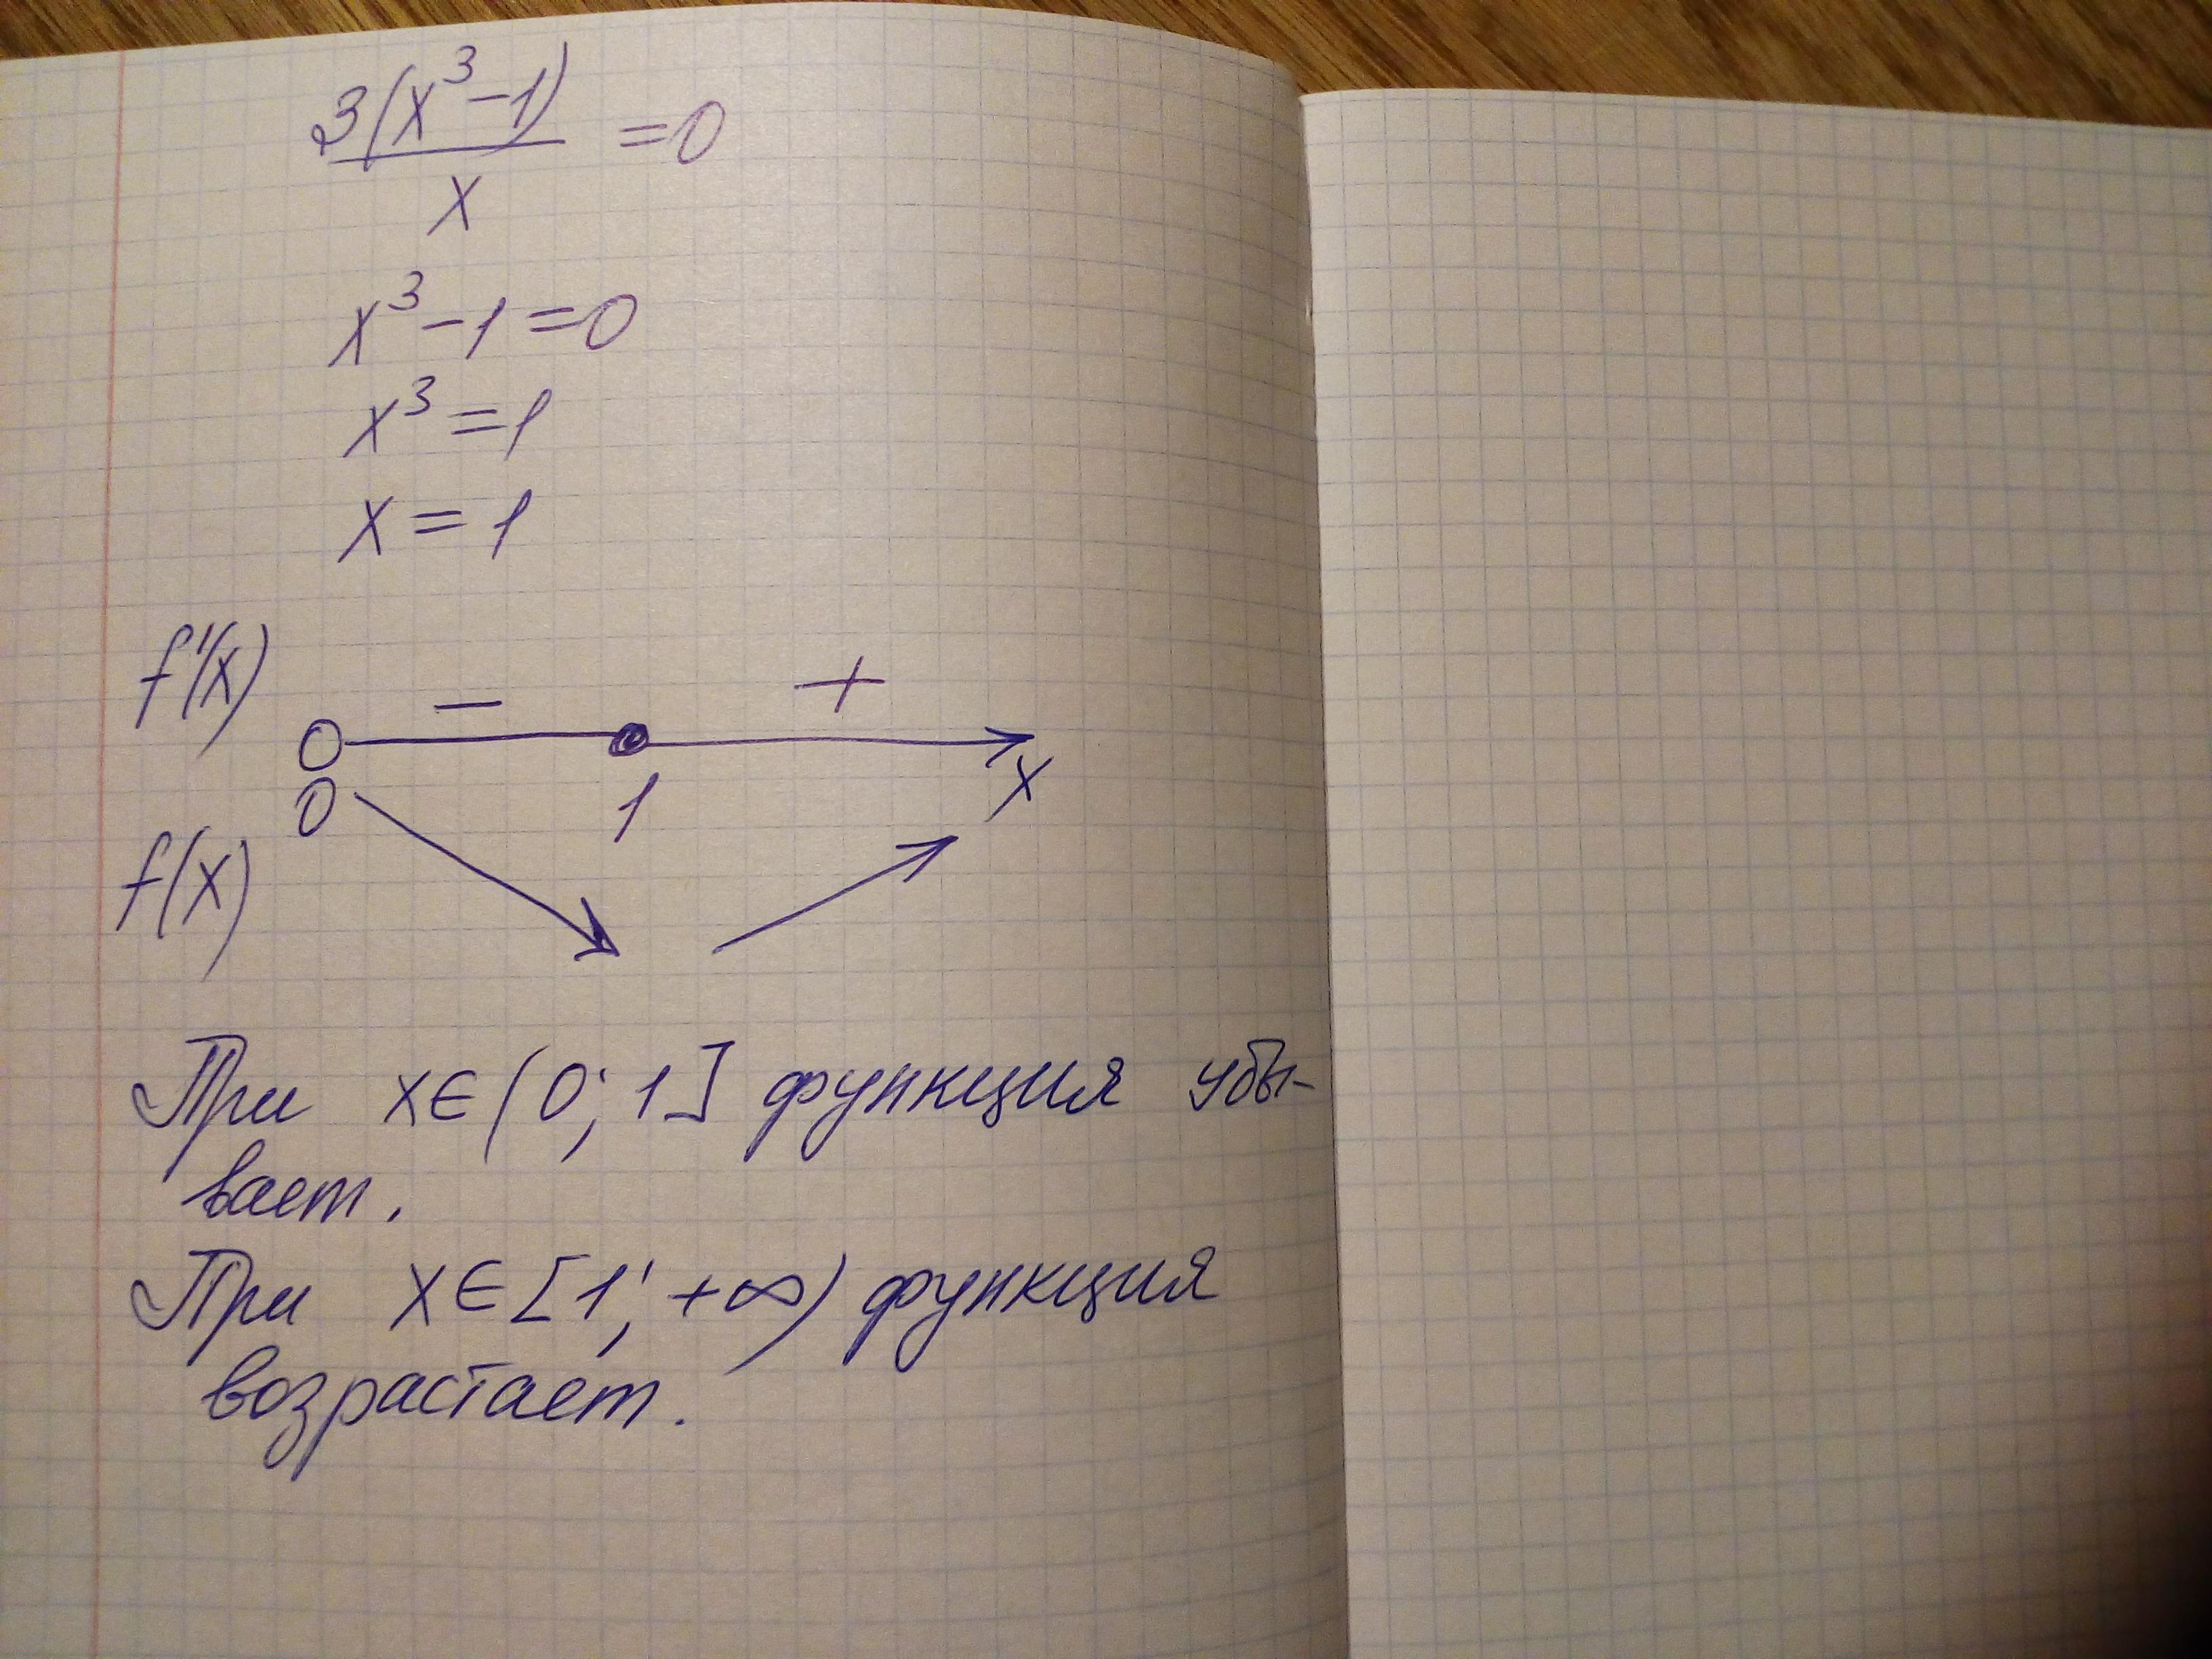 3(x³-1)/x =0
x³-1=0
x³=1
x=1
f'(x)
- +
0 1 x
f(x)
При x∈(0;1] функция убы-
вает.
При x∈[1;+∞) функция
возрастает.